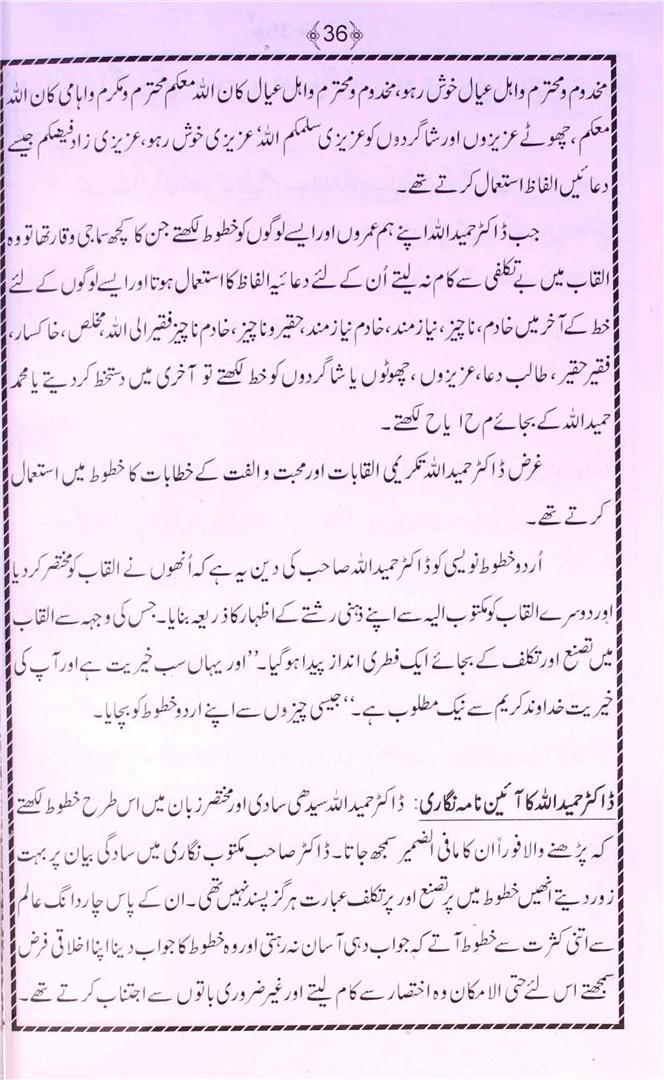 36
مخدوم و محترم و اہل عیال خوش رہو، مخدوم و محترم و اہل عیال کان اللہ معکم محترم و مکرم و اہامی کان اللہ
معکم، چھوٹے عزیزوں اور شاگردوں کو عزیزی سلمکم اللہ، عزیزی خوش رہو، عزیزی زاد فیضکم جیسے
دعائیں الفاظ استعمال کرتے تھے۔
جب ڈاکٹر حمید اللہ اپنے ہم عمروں اور ایسے لوگوں کو خطوط لکھتے جن کا کچھ سماجی وقار تھا تو وہ
القاب میں بے تکلفی سے کام نہ لیتے اُن کے لئے دعائیہ الفاظ کا استعمال ہوتا اور ایسے لوگوں کے لئے
خط کے آخر میں خادم، ناچیز، نیازمند، خادم نیازمند، حقیر و ناچیز، خادم ناچیز فقیر الی اللہ، مخلص، خاکسار،
فقیر حقیر، طالب دعا، عزیزوں، چھوٹوں یا شاگردوں کو خط لکھتے تو آخری میں دستخط کر دیتے یا محمد
حمید اللہ کے بجائے م ح ا یا ح لکھتے۔
غرض ڈاکٹر حمید اللہ تکریمی القابات اور محبت و الفت کے خطابات کا خطوط میں استعمال
کرتے تھے۔
اُردو خطوط نویسی کو ڈاکٹر حمید اللہ صاحب کی دین یہ ہے کہ اُنھوں نے القاب کو مختصر کر دیا
اور دوسرے القاب کو مکتوب الیہ سے اپنے ذہنی رشتے کے اظہار کا ذریعہ بنایا۔ جس کی وجہہ سے القاب
میں تصنع اور تکلف کے بجائے ایک فطری انداز پیدا ہو گیا۔ ’’اور یہاں سب خیریت ہے اور آپ کی
خیریت خداوند کریم سے نیک مطلوب ہے۔‘‘ جیسی چیزوں سے اپنے اردو خطوط کو بچایا۔
ڈاکٹر حمید اللہ کا آئین نامہ نگاری: ڈاکٹر حمید اللہ سیدھی سادی اور مختصر زبان میں اس طرح خطوط لکھتے
کہ پڑھنے والا فوراً ان کا مافی الضمیر سمجھ جاتا۔ ڈاکٹر صاحب مکتوب نگاری میں سادگی بیان پر بہت
زور دیتے انھیں خطوط میں پر تصنع اور پر تکلف عبارت ہرگز پسند نہیں تھی۔ ان کے پاس چار دانگ عالم
سے اتنی کثرت سے خطوط آتے کہ جواب دہی آسان نہ رہتی اور وہ خطوط کا جواب دینا اپنا اخلاقی فرض
سمجھتے اس لئے حتی الامکان وہ اختصار سے کام لیتے اور غیر ضروری باتوں سے اجتناب کرتے تھے۔